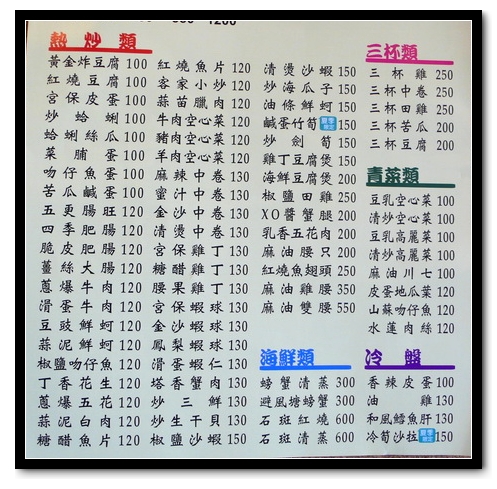 熱炒類
黃金炸豆腐 100
紅燒豆腐 100
宮保皮蛋 100
炒蛤蜊 100
蛤蜊絲瓜 100
菜脯蛋 100
吻仔魚蛋 100
苦瓜鹹蛋 100
五更腸旺 120
四季肥腸 120
脆皮肥腸 120
薑絲大腸 120
蔥爆牛肉 120
滑蛋牛肉 120
豆豉鮮蚵 120
蒜泥鮮蚵 120
椒鹽吻仔魚 120
丁香花生 120
蔥爆五花 120
蒜泥白肉 120
糖醋魚片 120
紅燒魚片 120
客家小炒 120
蒜苗臘肉 120
牛肉空心菜 120
豬肉空心菜 120
羊肉空心菜 120
麻辣中卷 130
蜜汁中卷 130
金沙中卷 130
清燙中卷 130
宮保雞丁 130
糖醋雞丁 130
腰果雞丁 130
宮保蝦球 130
金沙蝦球 130
鳳梨蝦球 130
滑蛋蝦仁 130
塔香蟹肉 130
炒三鮮 130
炒生干貝 130
椒鹽沙蝦 150
清燙沙蝦 150
炒海瓜子 150
油條鮮蚵 150
鹹蛋竹筍 夏季限定 150
炒劍筍 150
雞丁豆腐煲 150
海鮮豆腐煲 200
椒鹽田雞 250
XO醬蟹腿 200
乳香五花肉 200
麻油腰只 200
紅燒魚翅頭 250
麻油雞腰 350
麻油雙腰 550
海鮮類
螃蟹清蒸 300
避風塘螃蟹 300
石斑紅燒 600
石斑清蒸 600
三杯類
三杯雞 250
三杯中卷 250
三杯田雞 250
三杯苦瓜 200
三杯豆腐 200
青菜類
豆乳空心菜 100
清炒空心菜 100
豆乳高麗菜 100
清炒高麗菜 100
麻油川七 100
皮蛋地瓜葉 120
山蘇吻仔魚 120
水蓮肉絲 120
冷盤
香辣皮蛋 100
油雞 130
和風鱈魚肝 130
冷筍沙拉 夏季限定 150